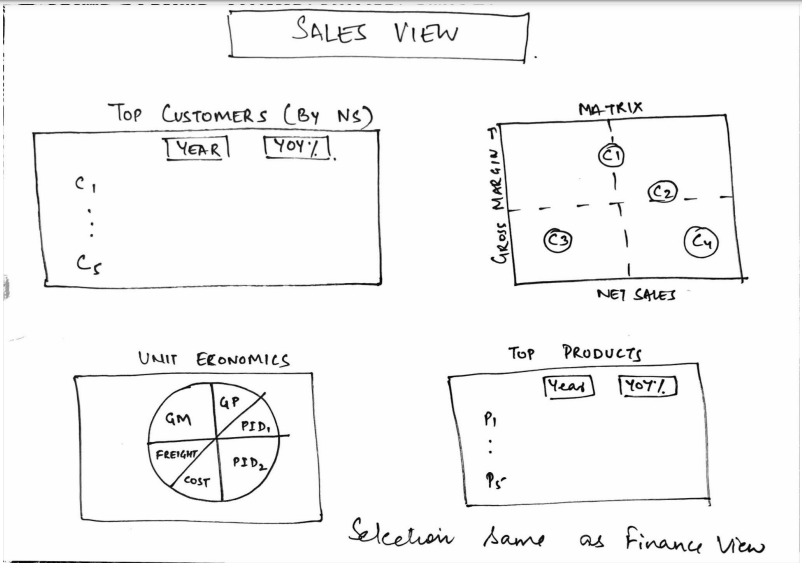 SALES VIEW
TOP CUSTOMERS (BY NS)
YEAR YOY%
C1
C5
MATRIX
GROSS MARGIN
C1
C2
C3
C4
NET SALES
UNIT ECONOMICS
GM
GP
PID1
FREIGHT
PID2
COST
TOP PRODUCTS
Year YOY%
P1
P5
Selection same as Finance View